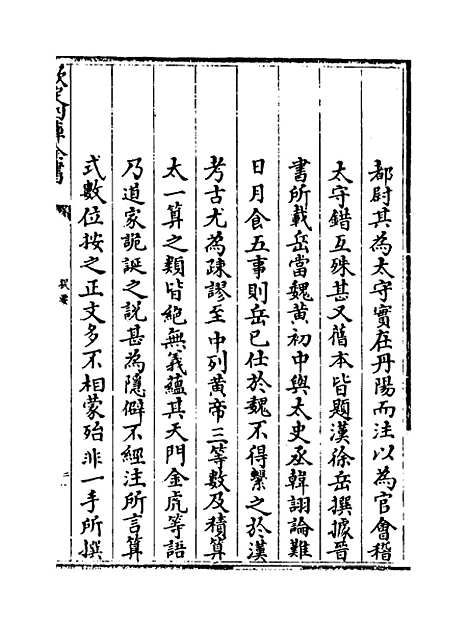 都尉其為太守實在丹陽而注以為官會稽
太守錯互殊甚又舊本皆題漢徐岳撰據晉
書所載岳當魏黃初中與太史丞韓詡論難
日月食五事則岳已仕於魏不得繫之於漢
考古尤為疎謬至中列黃帝三等數及積算
太一算之類皆絶無義藴其天門金虎等語
乃道家詭誕之說甚為隱僻不經注所言算
式數位按之正文多不相蒙殆非一手所撰
欽定四庫全書
提要
二